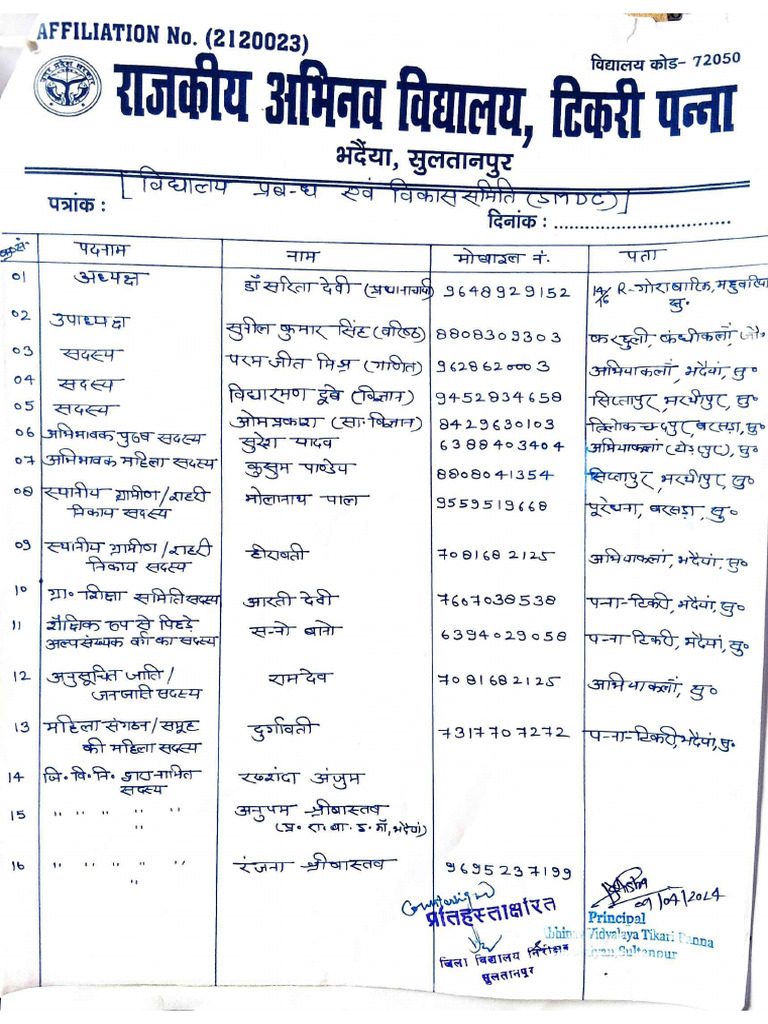 AFFILIATION No. (2120023)
विद्यालय कोड- 72050
राजकीय अभिनव विद्यालय, टिकरी पन्ना
भदैंया, सुलतानपुर
[विद्यालय प्रबन्ध एवं विकास समिति (SMDC)]
पत्रांक :
दिनांक : ................................
क्र०सं० पदनाम नाम मोबाइल नं. पता
01 अध्यक्ष डॉ सरिता देवी (प्रधानाचार्या) 9648929152 R-गोराबारिक,
02 उपाध्यक्ष सुनील कुमार सिंह (वरिष्ठ) 8808309303
03 सदस्य परम जीत मिश्र (गणित) 9628620003 अभियाकलाँ, भदैयां, सु०
04 सदस्य विद्यारमण दूबे (विज्ञान) 9452834658 भरथीपुर, सु०
05 सदस्य ओमप्रकाश (सा. विज्ञान) 8429630103 बरसड़ा, सु०
06 अभिभावक पुरुष सदस्य सुरेश यादव 6388403404 अभियाकलां सु०
07 अभिभावक महिला सदस्य कुसुम पाण्डेय 8808041354 भरथीपुर, सु०
08 स्थानीय ग्रामीण / शहरी भोलानाथ पाल 9559519668 बरसड़ा, सु०
निकाय सदस्य
09 स्थानीय ग्रामीण / शहरी हीरावती 7081682125 अभियाकलां, भदैयां, सु०
निकाय सदस्य
10 ग्रा० शिक्षा समिति सदस्य आरती देवी 7607038538 पन्ना-टिकरी, भदैयां, सु०
11 शैक्षिक रूप से पिछड़े सन्नो बानो 6394029058 पन्ना टिकरी, भदैयां, सु०
अल्पसंख्यक वर्ग का सदस्य
12 अनुसूचित जाति / रामदेव 7081682125 अभियाकलां, सु०
जनजाति सदस्य
13 महिला संगठन / समूह दुर्गावती 7317707272 पन्ना-टिकरी, भदैयां, सु०
की महिला सदस्य
14 जि. वि. नि. द्वारा नामित रख्शंदा अंजुम
सदस्य
15 " " " " " अनुपम श्रीवास्तव
" (प्र. रा. बा. इ. कॉ, भदैयां)
16 " " " " " रंजना श्रीवास्तव 9695237199
"
प्रतिहस्ताक्षरित
/04/2024
Principal
Abhinav Vidyalaya Tikari Panna
Sultanpur
जिला विद्यालय निरीक्षक
सुलतानपुर